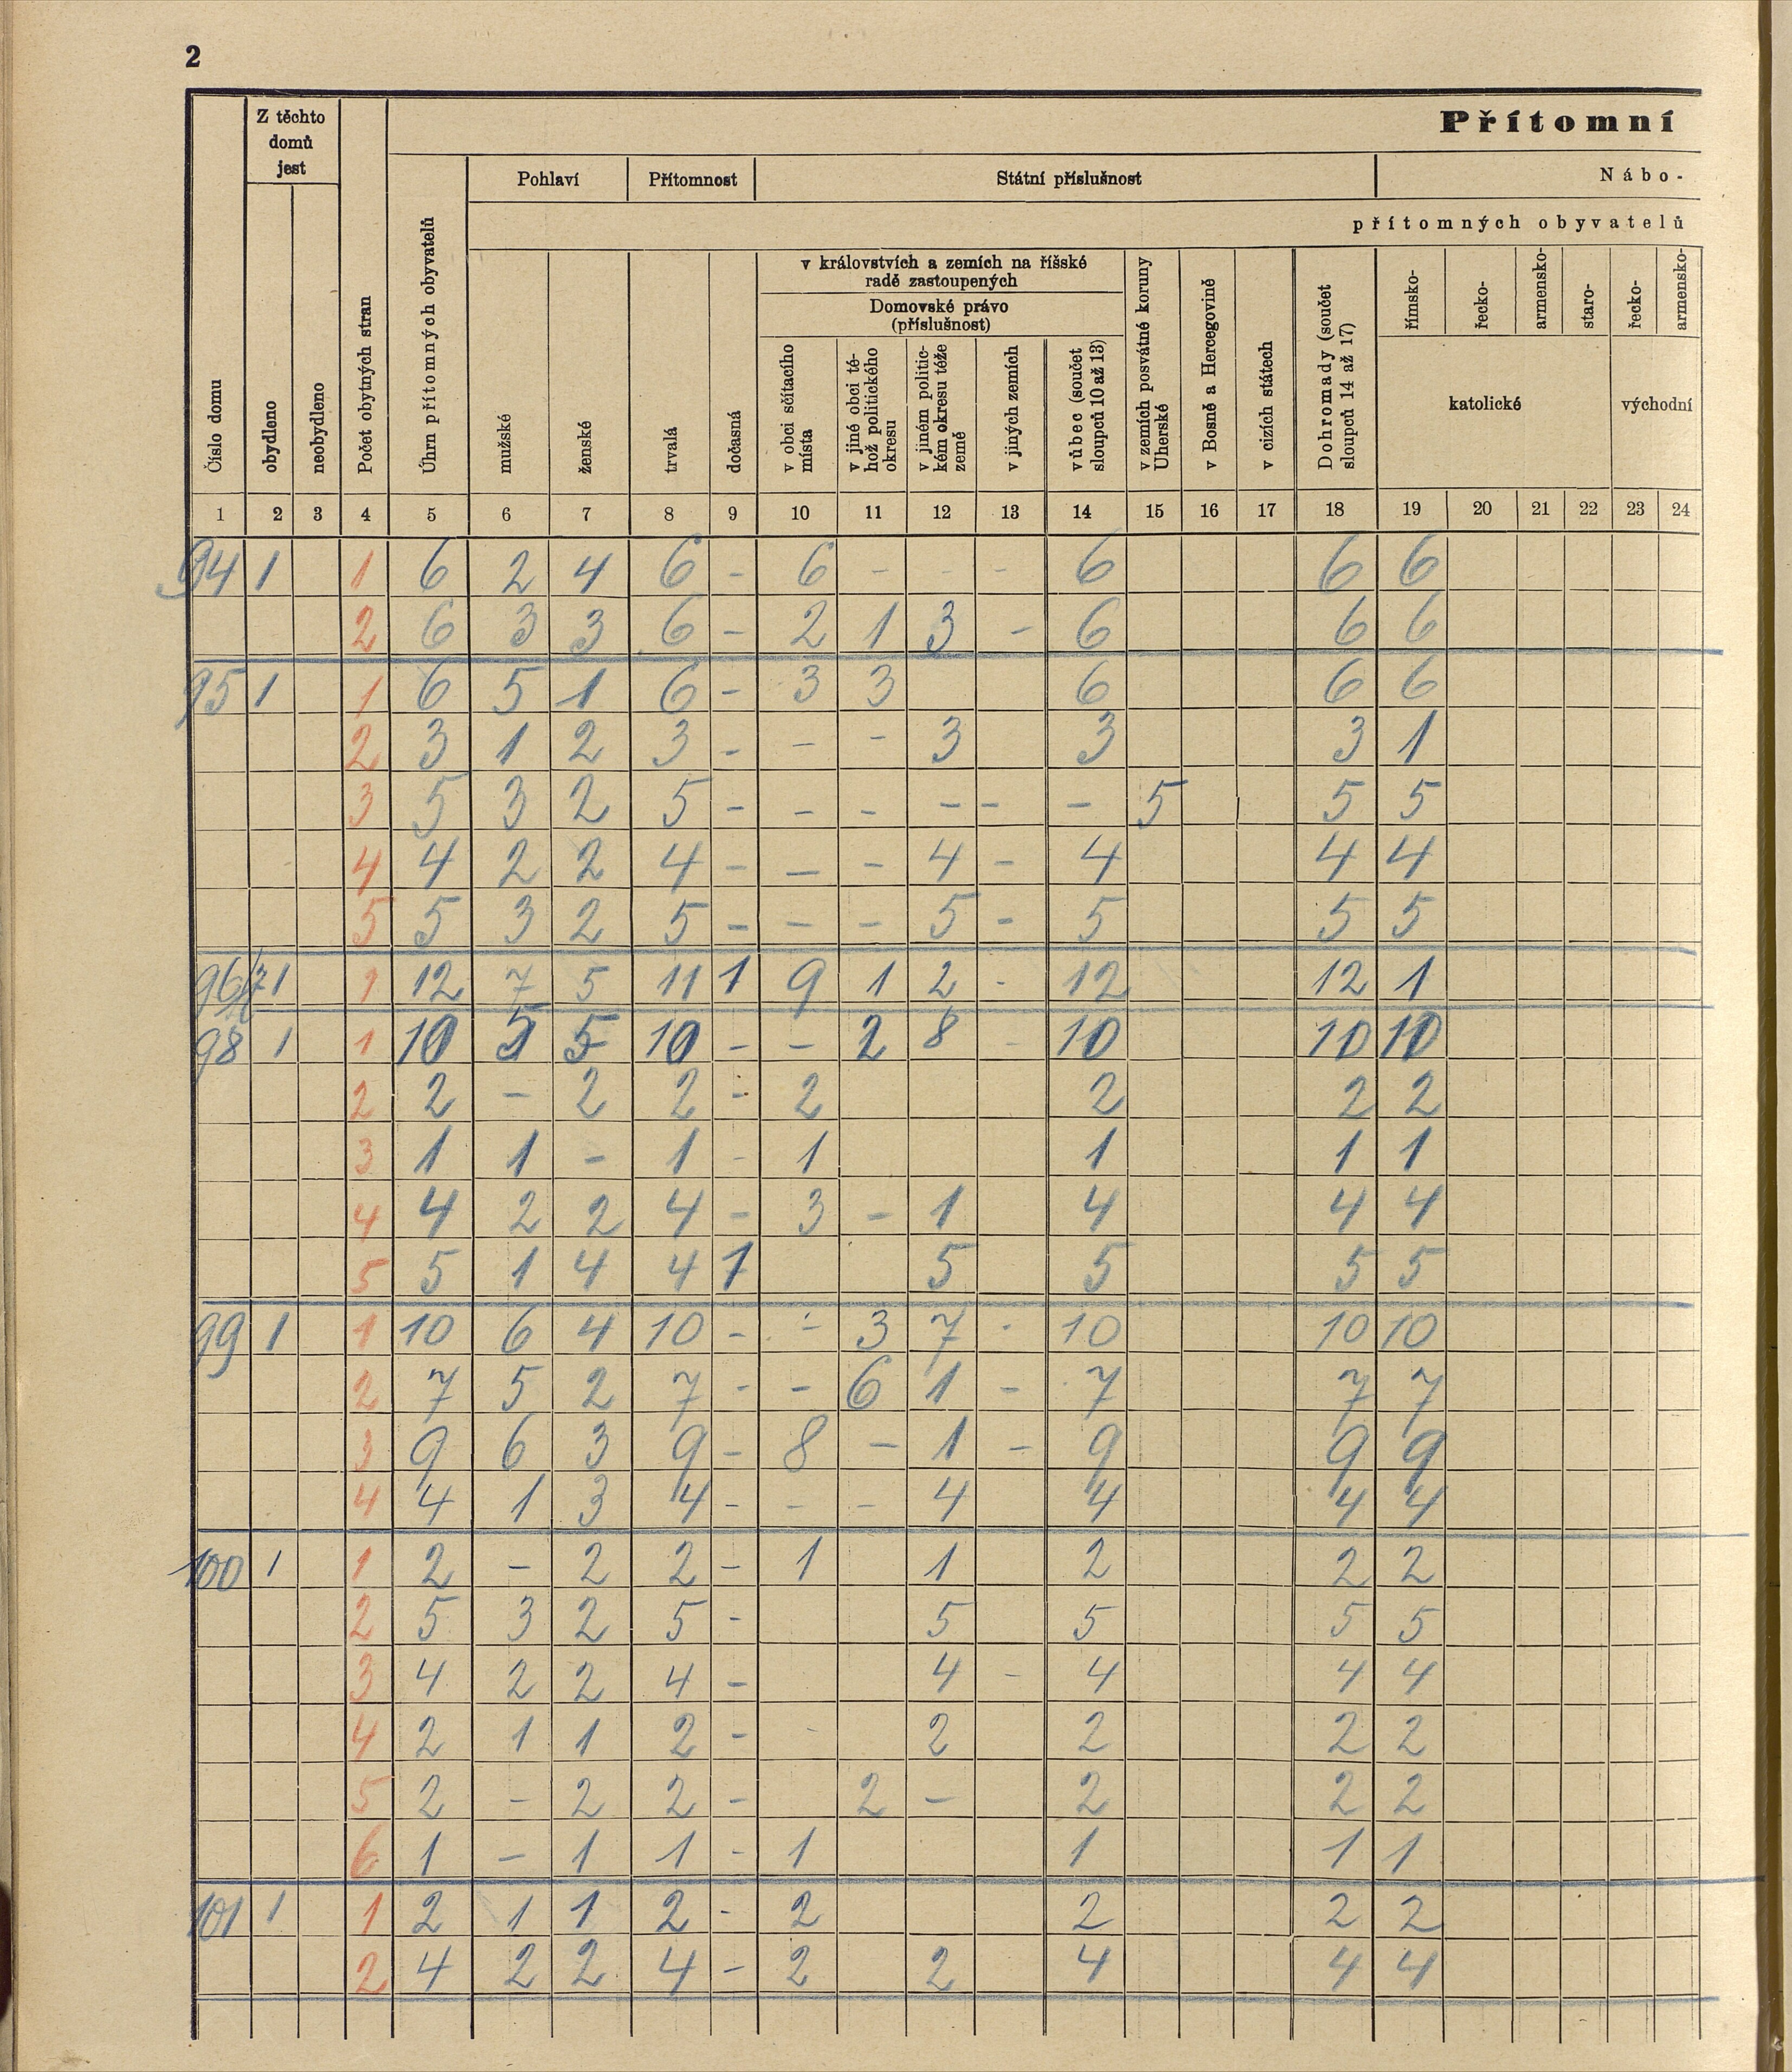 2
Přítomní
Z těchto domů jest
Pohlaví Přítomnost Státní příslušnost Nábo-
přítomných obyvatelů
v královstvích a zemích na říšské radě zastoupených
Domovské právo (příslušnost)
Číslo domu
obydleno
neobydleno
Počet obytných stran
Úhrn přítomných obyvatelů
mužské
ženské
trvalá
dočasná
v obci sčítacího místa
v jiné obci téhož politického okresu
v jiném politickém okresu téže země
v jiných zemích
vůbec (součet sloupců 10 až 13)
v zemích posvátné koruny Uherské
v Bosně a Hercegovině
v cizích státech
Dohromady (součet sloupců 14 až 17)
římsko-
řecko-
armensko-
staro-
řecko-
armensko-
katolické východní
1 2 3 4 5 6 7 8 9 10 11 12 13 14 15 16 17 18 19 20 21 22 23 24
94 1 1 6 2 4 6 - 6 - - - 6 6 6
2 6 3 3 6 - 2 1 3 - 6 6 6
95 1 1 6 5 1 6 - 3 3 6 6 6
2 3 1 2 3 - - - 3 3 3 1
3 5 3 2 5 - - - - - - 5 5 5
4 4 2 2 4 - - - 4 - 4 4 4
5 5 3 2 5 - - - 5 - 5 5 5
96/7 1 1 12 7 5 11 1 9 1 2 - 12 12 1
98 1 1 10 5 5 10 - - 2 8 - 10 10 10
2 2 - 2 2 - 2 2 2 2
3 1 1 - 1 - 1 1 1 1
4 4 2 2 4 - 3 - 1 4 4 4
5 5 1 4 4 1 5 5 5 5
99 1 1 10 6 4 10 - - 3 7 - 10 10 10
2 7 5 2 7 - - 6 1 - 7 7 7
3 9 6 3 9 - 8 - 1 - 9 9 9
4 4 1 3 4 - - - 4 4 4 4
100 1 1 2 - 2 2 - 1 1 2 2 2
2 5 3 2 5 - 5 5 5 5
3 4 2 2 4 - 4 - 4 4 4
4 2 1 1 2 - - 2 2 2 2
5 2 - 2 2 - 2 - 2 2 2
6 1 - 1 1 - 1 1 1 1
101 1 1 2 1 1 2 - 2 2 2 2
2 4 2 2 4 - 2 2 4 4 4